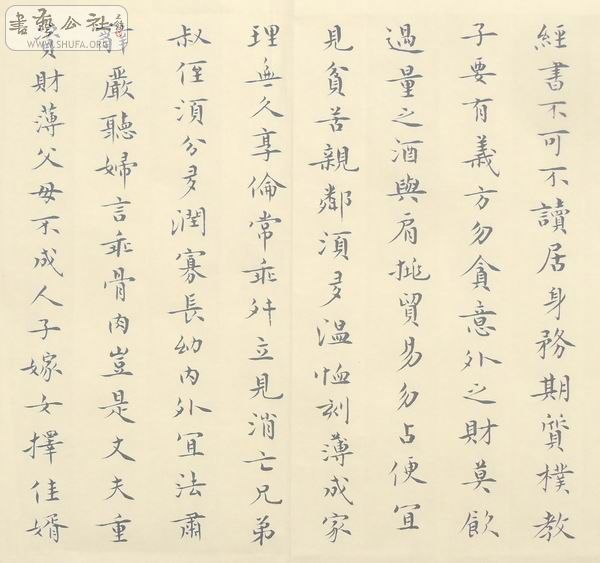 經書不可不讀居身務期質樸教
子要有義方勿貪意外之財莫飲
過量之酒與肩挑貿易勿占便宜
見貧苦親鄰須多溫恤刻薄成家
理無久享倫常乖舛立見消亡兄弟
叔侄須分多潤寡長幼內外宜法肅
辭嚴聽婦言乖骨肉豈是丈夫重
資財薄父母不成人子嫁女擇佳婿
書藝公社
WWW.SHUFA.ORG